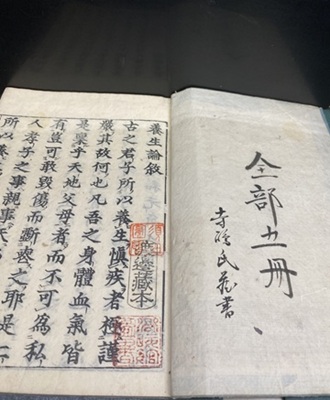 全部五冊
養生論敘
古之君子所以養生慎疾者極謹
嚴其故何也凡吾之身體血氣皆
是稟乎天地父母者而不可為私
有豈可敢毀傷而斷喪之耶是
人孝子之事親事
所以養生
渡邊藏本